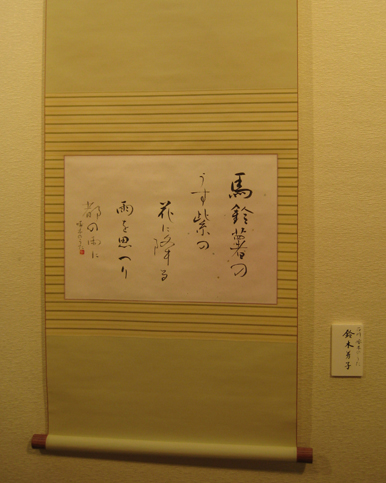 馬鈴薯の
うす紫の
花に降る
雨を思へり
都の雨に
鈴木
子